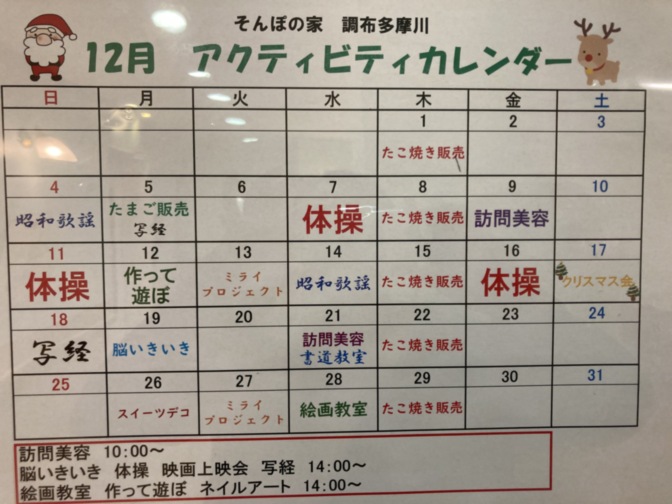 そんぽの家 調布多摩川
12月 アクティビティカレンダー
日 月 火 水 木 金 土
1 2 3
たこ焼き販売
4 5 6 7 8 9 10
昭和歌謡 たまご販売 体操 たこ焼き販売 訪問美容
写経
11 12 13 14 15 16 17
体操 作って ミライ 昭和歌謡 たこ焼き販売 体操 クリスマス会
遊ぼ プロジェクト
18 19 20 21 22 23 24
写経 脳いきいき 訪問美容 たこ焼き販売
書道教室
25 26 27 28 29 30 31
スイーツデコ ミライ 絵画教室 たこ焼き販売
プロジェクト
訪問美容 10:00～
脳いきいき 体操 映画上映会 写経 14:00～
絵画教室 作って遊ぼ ネイルアート 14:00～